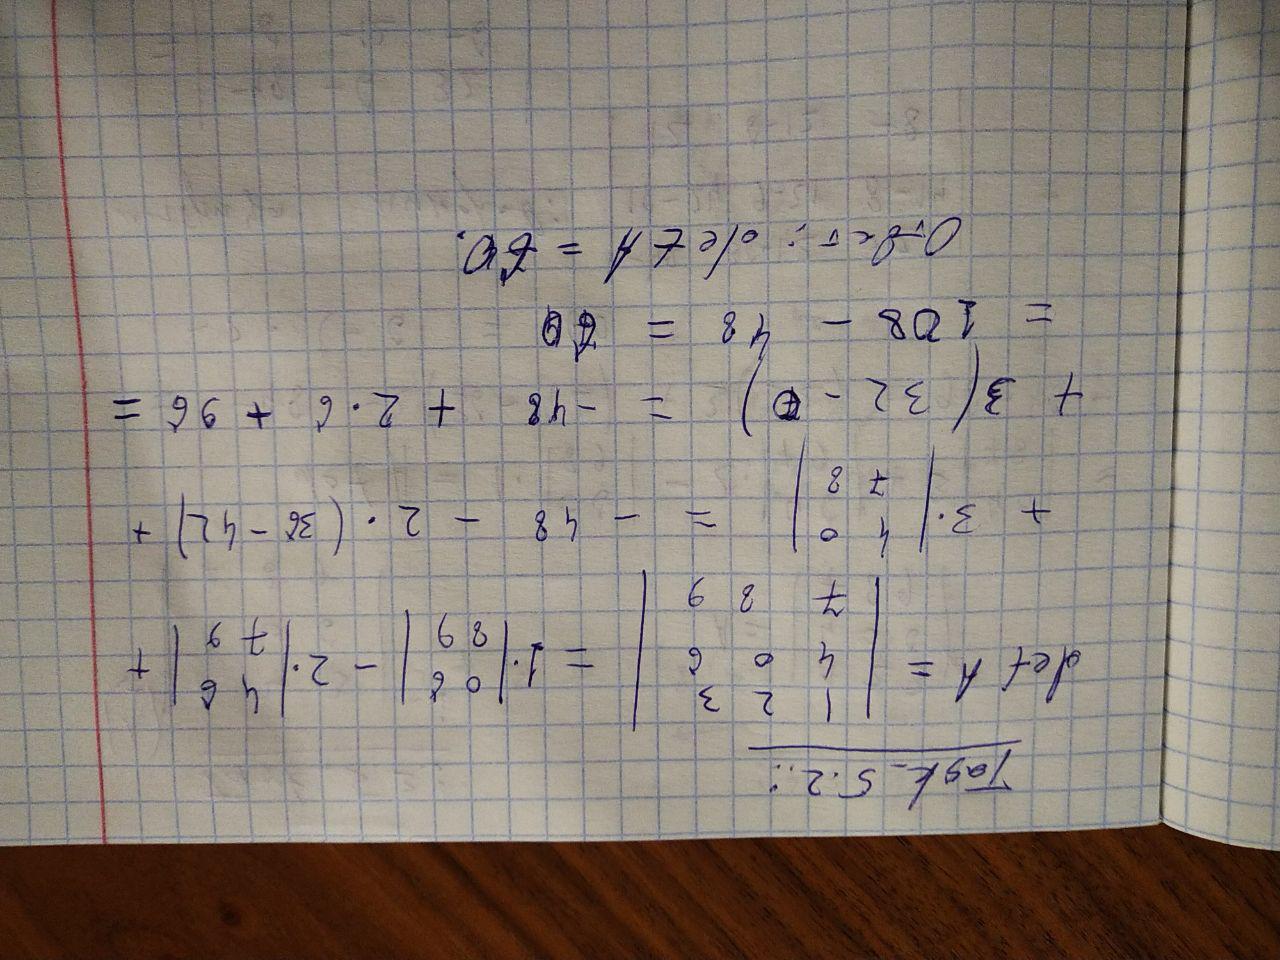 Task 5.2.:
det A = | 1 2 3 ; 4 0 6 ; 7 8 9 | = 1·| 0 6 ; 8 9 | - 2·| 4 6 ; 7 9 | +
+ 3·| 4 0 ; 7 8 | = - 48 - 2·(36 - 42) +
+ 3(32 - 0) = -48 + 2·6 + 96 =
= 108 - 48 = 60
Ответ: det A = 60.